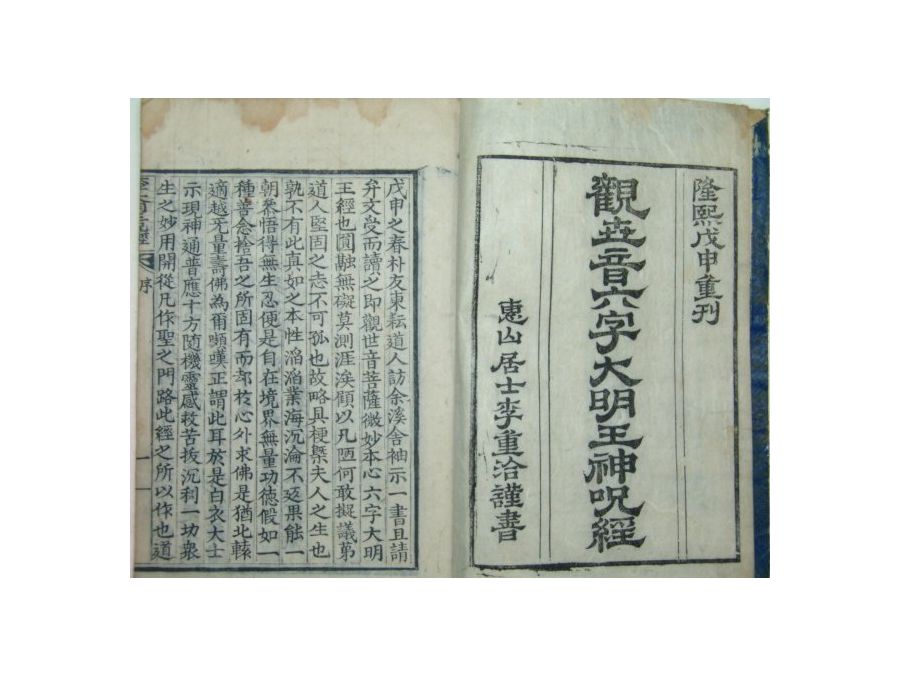 隆熙戊申重刊
觀世音六字大明王神呪經
惠山居士李重洽謹書
戊申之春朴友東耘道人訪余溪舍袖示一書且請
弁文受而讀之即觀世音菩薩微妙本心六字大明
王經也圓融無礙莫測涯涘顧以凡陋何敢擬議第
道人堅固之志不可孤也故略具梗槩夫人之生也
孰不有此真如之本性滔滔業海沉淪不返果能一
朝悉悟得無生忍便是自在境界無量功德假如一
種善念捨吾之所固有而却於心外求佛是猶北轅
適越无量壽佛為爾嚬嘆正謂此耳於是白衣大士
示現神通普應十方隨機靈感救苦拔沉利一切衆
生之妙用開從凡作聖之門路此經之所以作也道
序
一